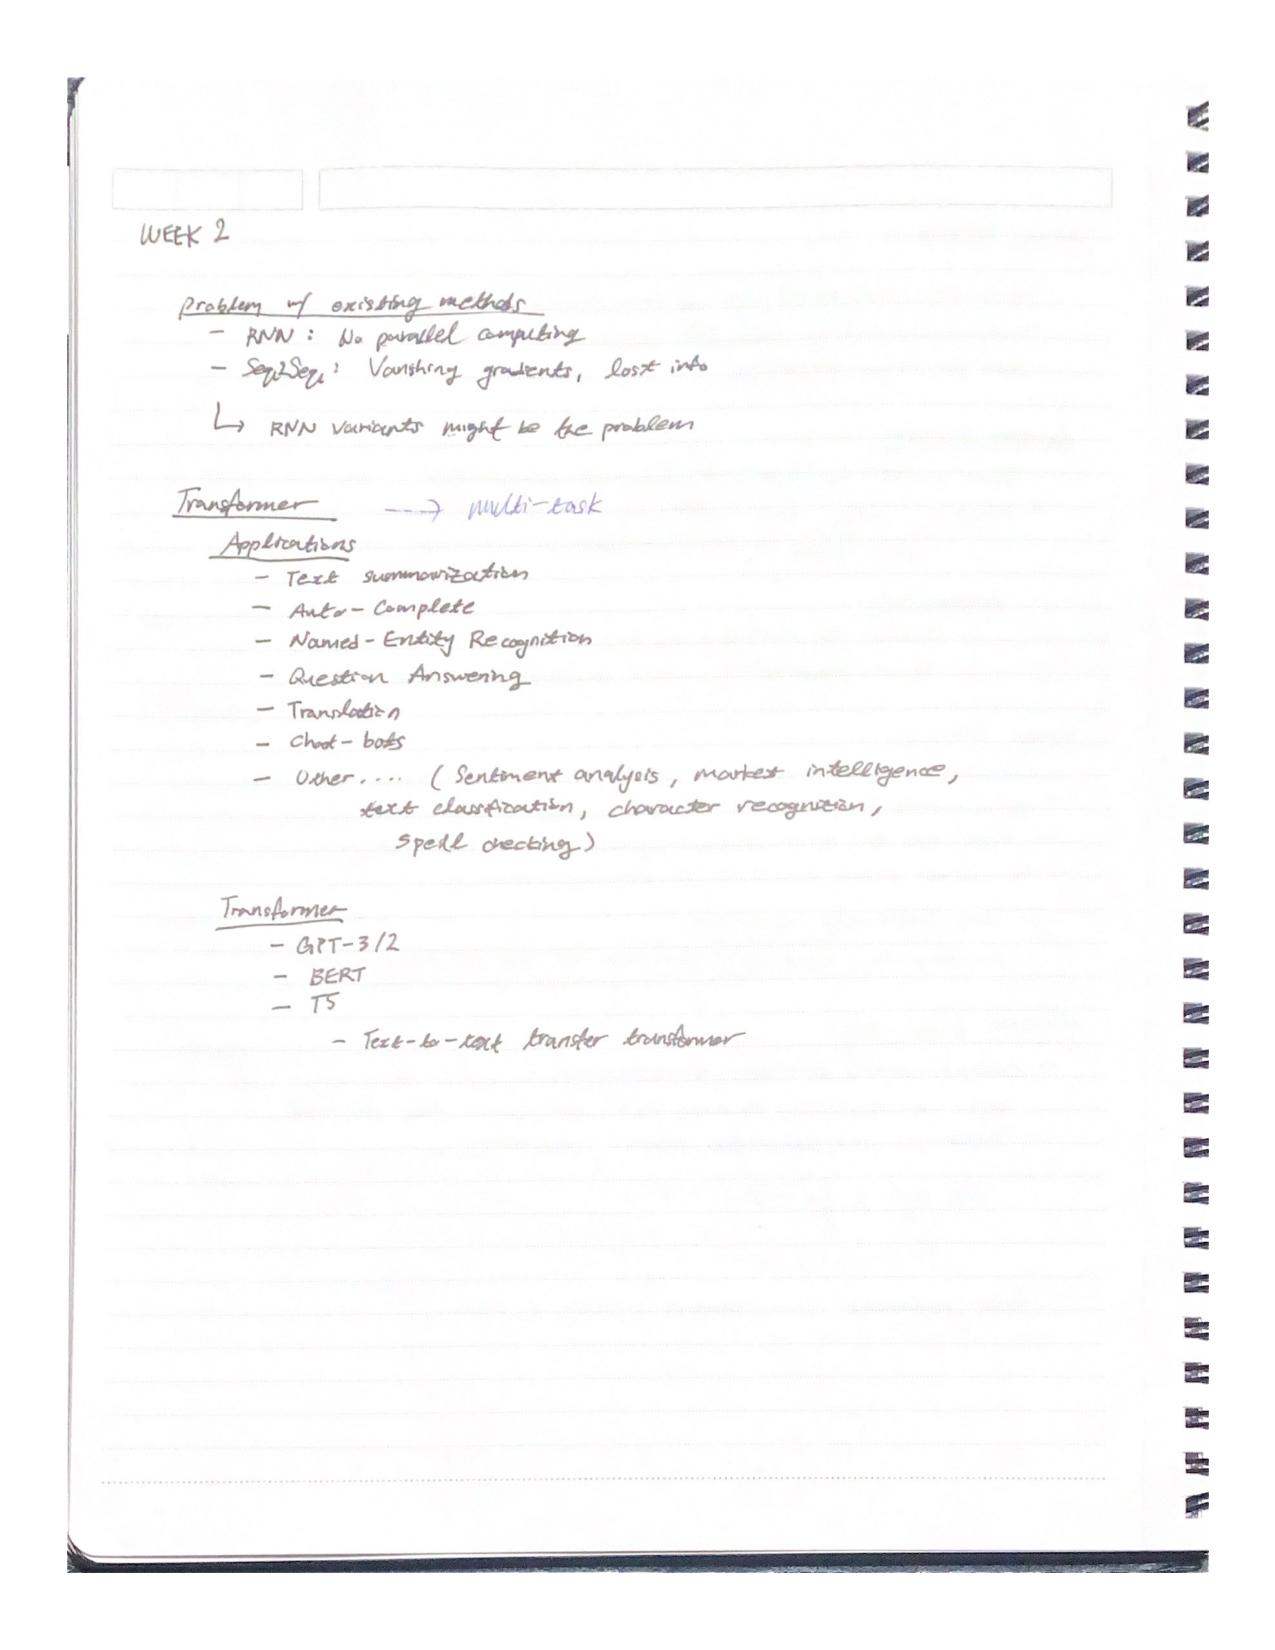 WEEK 2
Problem w/ existing methods
- RNN : No parallel computing
- Seq2Seq : Vanishing gradients, lost info
↳ RNN variants might be the problem
Transformer ---> multi-task
Applications
- Text summarization
- Auto-Complete
- Named-Entity Recognition
- Question Answering
- Translation
- Chat-bots
- Other.... (Sentiment analysis, market intelligence,
text classification, character recognition,
spell checking)
Transformer
- GPT-3/2
- BERT
- T5
- Text-to-text transfer transformer